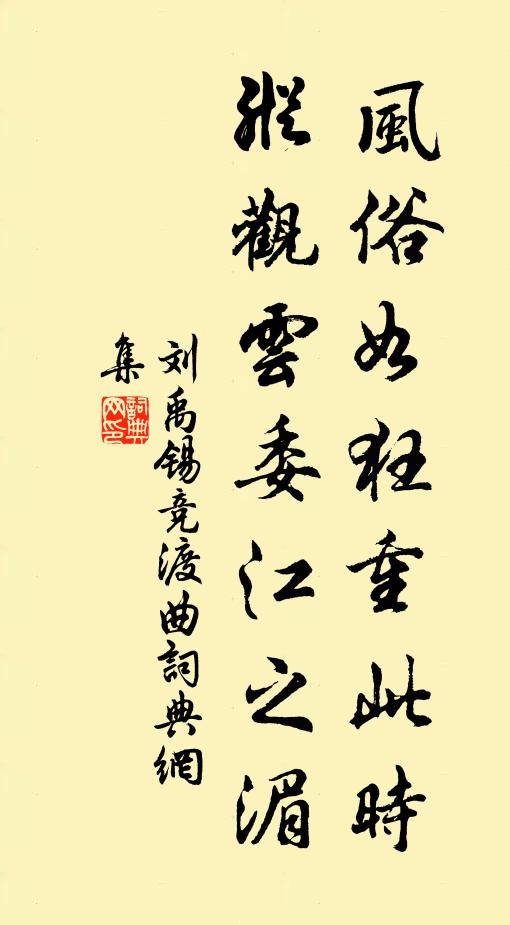 風俗如狂重此時
縱觀雲委江之湄
刘禹锡竞渡曲詞典網
集
詞典網印